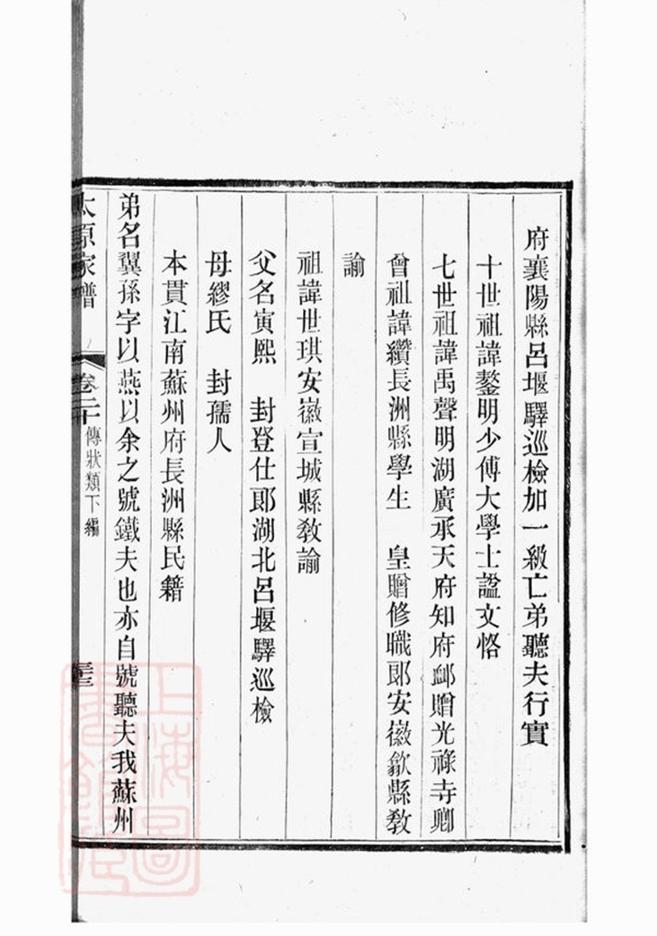 府襄陽縣呂堰驛巡檢加一級亡弟聽夫行實
十世祖諱鏊明少傅大學士諡文恪
七世祖諱禹聲明湖廣承天府知府卹贈光祿寺卿
曾祖諱纘長洲縣學生 皇贈修職郎安徽歙縣教
諭
祖諱世琪安徽宣城縣教諭
父名寅熙 封登仕郎湖北呂堰驛巡檢
母繆氏 封孺人
本貫江南蘇州府長洲縣民籍
弟名翼孫字以燕以余之號鐵夫也亦自號聽夫我蘇州
太原家譜 卷二十 傳狀類下編
上海圖書館藏